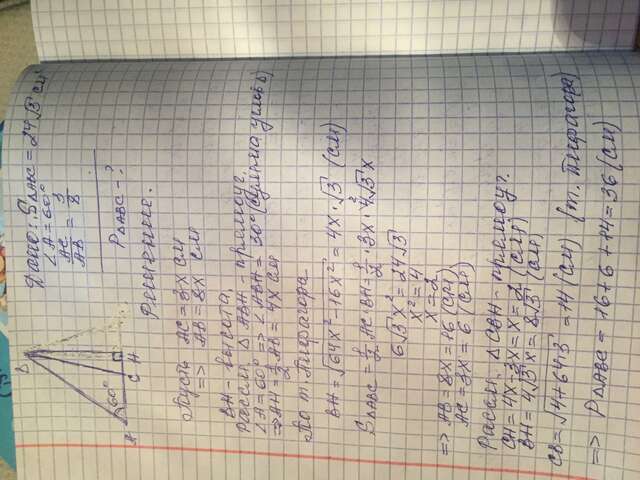 Дано: S△ABC = 24√3 см²
∠A = 60°
AC/AB = 3/8
P△ABC - ?
B
60°
A C H
Решение.
Пусть AC = 3x см
=> AB = 8x см
BH - высота.
Рассм. △ABH - прямоуг.
∠A = 60° => ∠ABH = 30° (сумма углов △)
=> AH = 1/2 AB = 4x см
По т. Пифагора
BH = √64x² - 16x² = 4x · √3 (см)
S△ABC = 1/2 · AC · BH = 1/2 · 3x · 4√3 x
6√3 x² = 24√3
x² = 4
x = 2
=> AB = 8x = 16 (см)
AC = 3x = 6 (см)
Рассм. △CBH - прямоуг.
CH = 4x - 3x = x = 2 (см)
BH = 4√3 x = 8√3 (см)
CB = √4 + 64 · 3 = 14 (см) (т. Пифагора)
=> P△ABC = 16 + 6 + 14 = 36 (см)